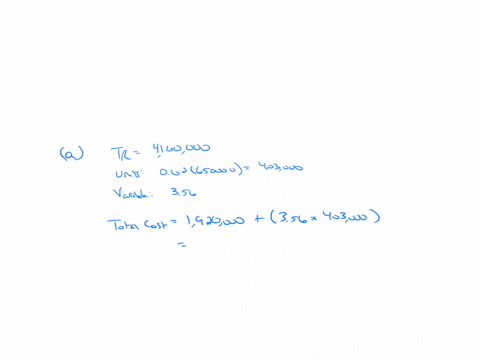 (a) TR = 4,160,000
units: 0.62 (650000) = 403,000
Variable: 3.56
Total Cost = 1,920,000 + (3.56 x 403,000)
=